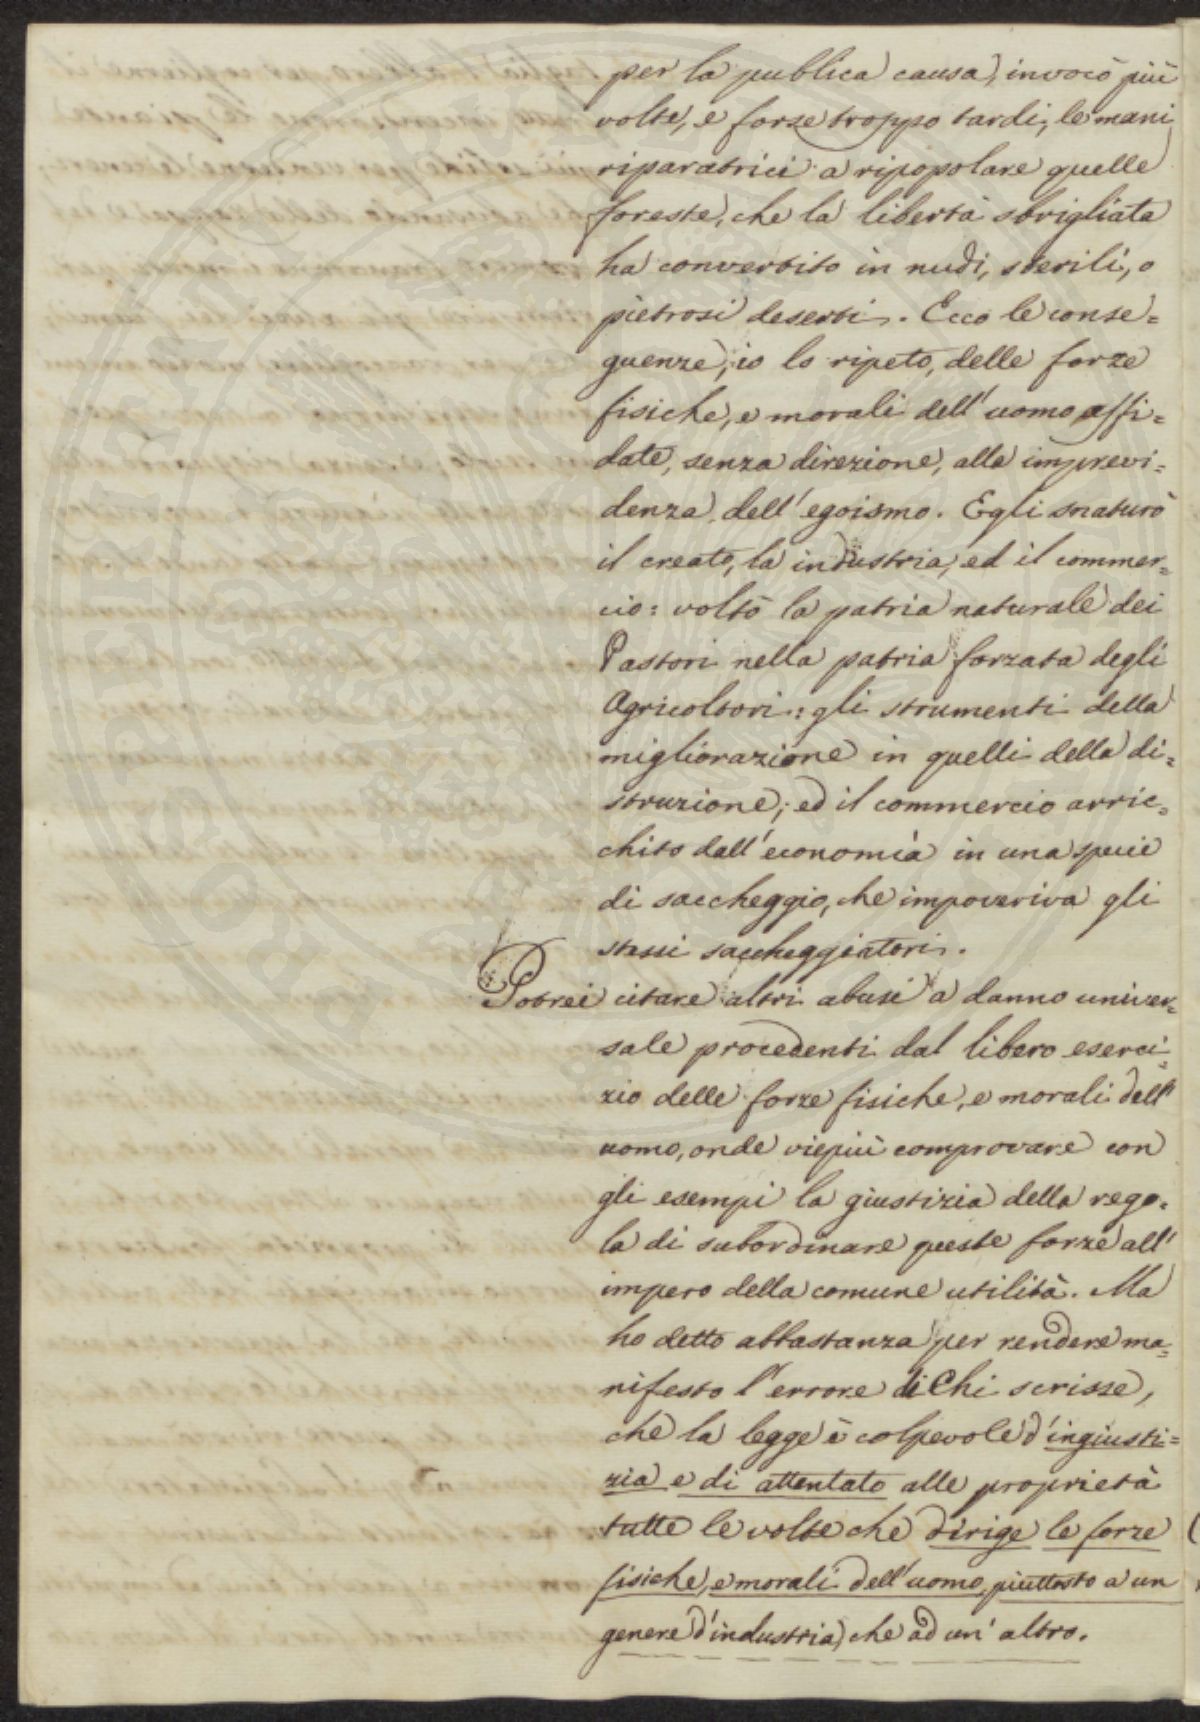 per la publica causa, invocò più
volte, e forse troppo tardi, le mani
riparatrici a ripopolare quelle
foreste, che la libertà sbrigliata
ha convertito in nudi, sterili, o
pietrosi deserti. Ecco le conse=
guenze, io lo ripeto, delle forze
fisiche, e morali dell'uomo affi=
date, senza direzione, alla imprevi=
denza dell'egoismo. Egli snaturò
il creato, la industria, ed il commer=
cio: voltò la patria naturale dei
Pastori nella patria forzata degli
Agricoltori: gli strumenti della
migliorazione in quelli della di=
struzione; ed il commercio arric=
chito dall'economia in una specie
di saccheggio, che impoveriva gli
stessi saccheggiatori.
Potrei citare altri abusi a danno univer=
sale procedenti dal libero eserci=
zio delle forze fisiche, e morali dell'
uomo, onde viepiù comprovare con
gli esempi la giustizia della rego=
la di subordinare queste forze all'
impero della comune utilità. Ma
ho detto abbastanza per rendere ma=
nifesto l'errore di Chi scrisse,
che la legge è colpevole d'ingiusti=
zia e di attentato alle proprietà
tutte le volte che dirige le forze
fisiche, e morali dell'uomo, piuttosto a un
genere d'industria, che ad un'altro.
PROSPERITATI PUBLICAE